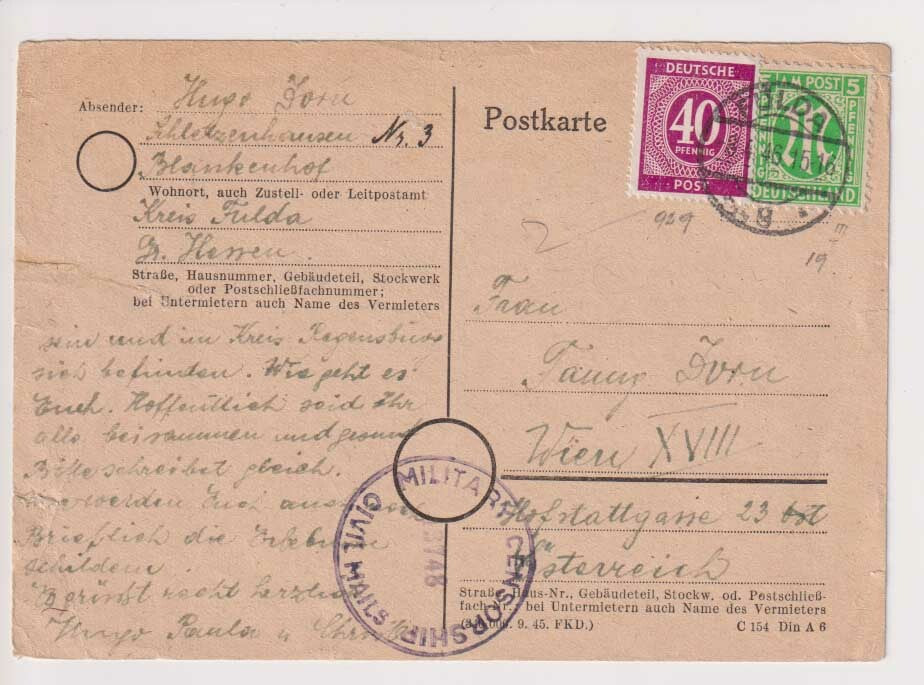 Absender: Hugo Dorn
Schletzenhausen Nr. 3
Blankenhof
Wohnort, auch Zustell- oder Leitpostamt
Kreis Fulda
Hessen.
Straße, Hausnummer, Gebäudeteil, Stockwerk
oder Postschließfachnummer;
bei Untermietern auch Name des Vermieters
sind und im Kreis Regensburg
sich befinden. Wie geht es
Euch. Hoffentlich seid Ihr
alle beisammen und gesund
Bitte schreibet gleich.
werden Euch auch
Brieflich die
schildern.
Es grüßt recht herzlich
Hugo Paula u
Postkarte
DEUTSCHE
40
PFENNIG
POST
5 AM POST 5
PFENNIG
DEUTSCHLAND
FULDA
46.15-16
929
III
19
Frau
Fanny Dorn
Wien XVIII
Hofstattgasse 23
Österreich
Straße, Haus-Nr., Gebäudeteil, Stockw. od. Postschließ-
fach-Nr.; bei Untermietern auch Name des Vermieters
9. 45. FKD.)
C 154 Din A 6
MILITARY CENSORSHIP
CIVIL MAILS